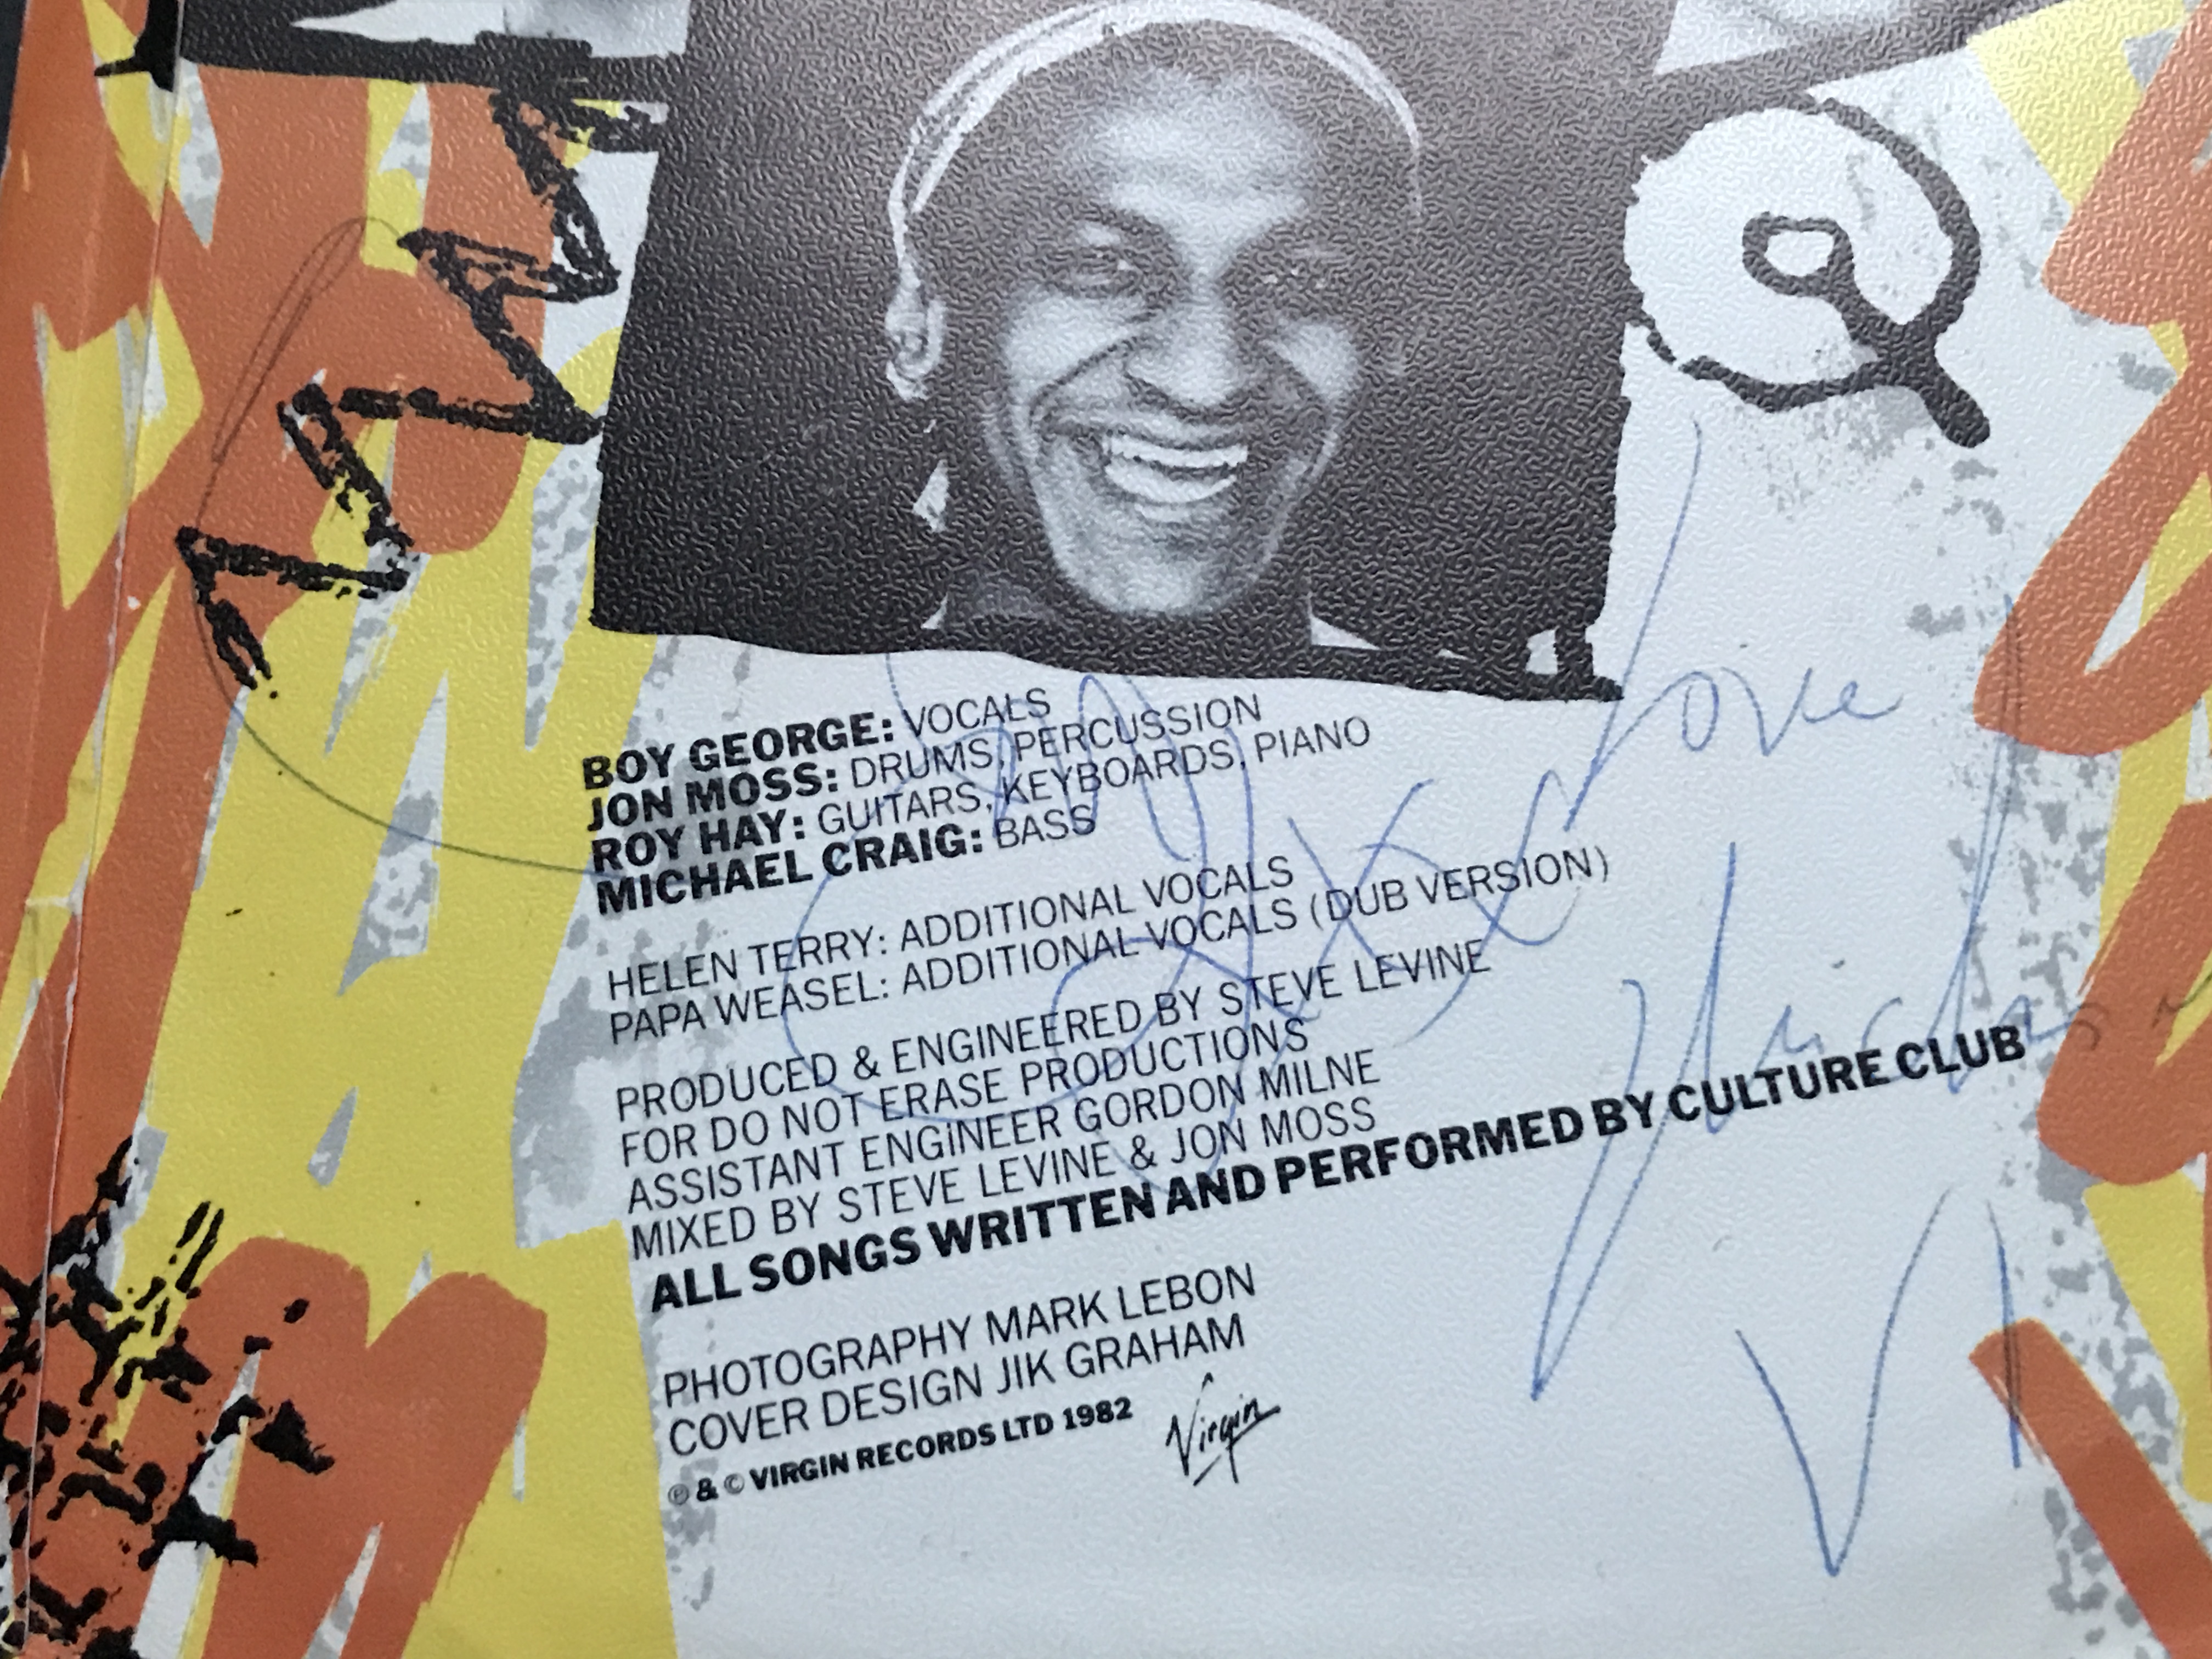 BOY GEORGE: VOCALS
JON MOSS: DRUMS, PERCUSSION
ROY HAY: GUITARS, KEYBOARDS, PIANO
MICHAEL CRAIG: BASS
Love
HELEN TERRY: ADDITIONAL VOCALS
PAPA WEASEL: ADDITIONAL VOCALS (DUB VERSION)
PRODUCED & ENGINEERED BY STEVE LEVINE
FOR DO NOT ERASE PRODUCTIONS
ASSISTANT ENGINEER GORDON MILNE
MIXED BY STEVE LEVINE & JON MOSS
ALL SONGS WRITTEN AND PERFORMED BY CULTURE CLUB
PHOTOGRAPHY MARK LEBON
COVER DESIGN JIK GRAHAM
℗ & © VIRGIN RECORDS LTD 1982
Virgin